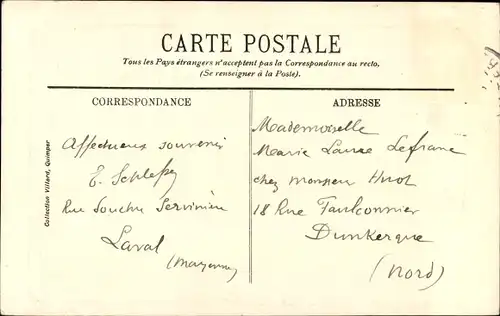 CARTE POSTALE
Tous les Pays étrangers n'acceptent pas la Correspondance au recto.
(Se renseigner à la Poste).
CORRESPONDANCE
Affectueux souvenir
E.
Rue Souchu Servinière
Laval
(Mayenne)
Collection Villard, Quimper
ADRESSE
Mademoiselle
Marie Laure Lefranc
chez Monsieur Huot
18 Rue Faulconnier
Dunkerque
(Nord)